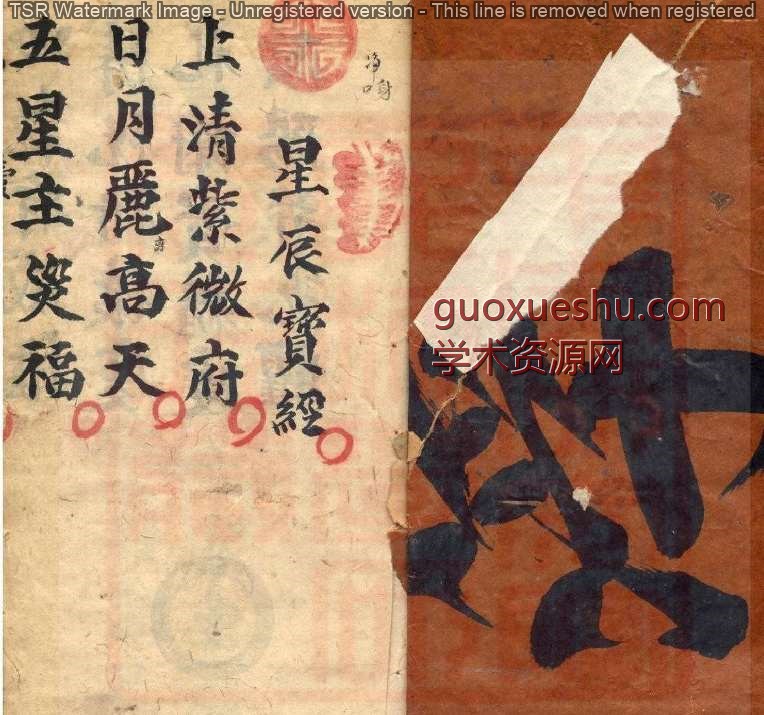 TSR Watermark Image - Unregistered version - This line is removed when registered
净
星辰寶經
上清紫微府
日月麗高天
五星主災福
guoxueshu.com
学术资源网